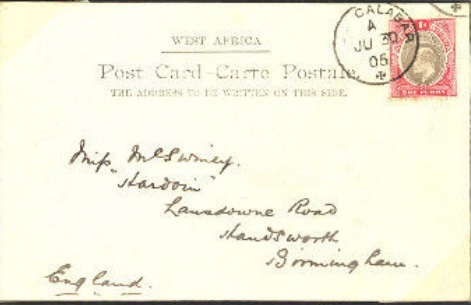 WEST AFRICA
Post Card - Carte Postale.
THE ADDRESS TO BE WRITTEN ON THIS SIDE.
CALABAR
A
JU 30
05
ONE PENNY
Miss McSwiney.
Lansdowne Road
Handsworth
Birmingham.
England.